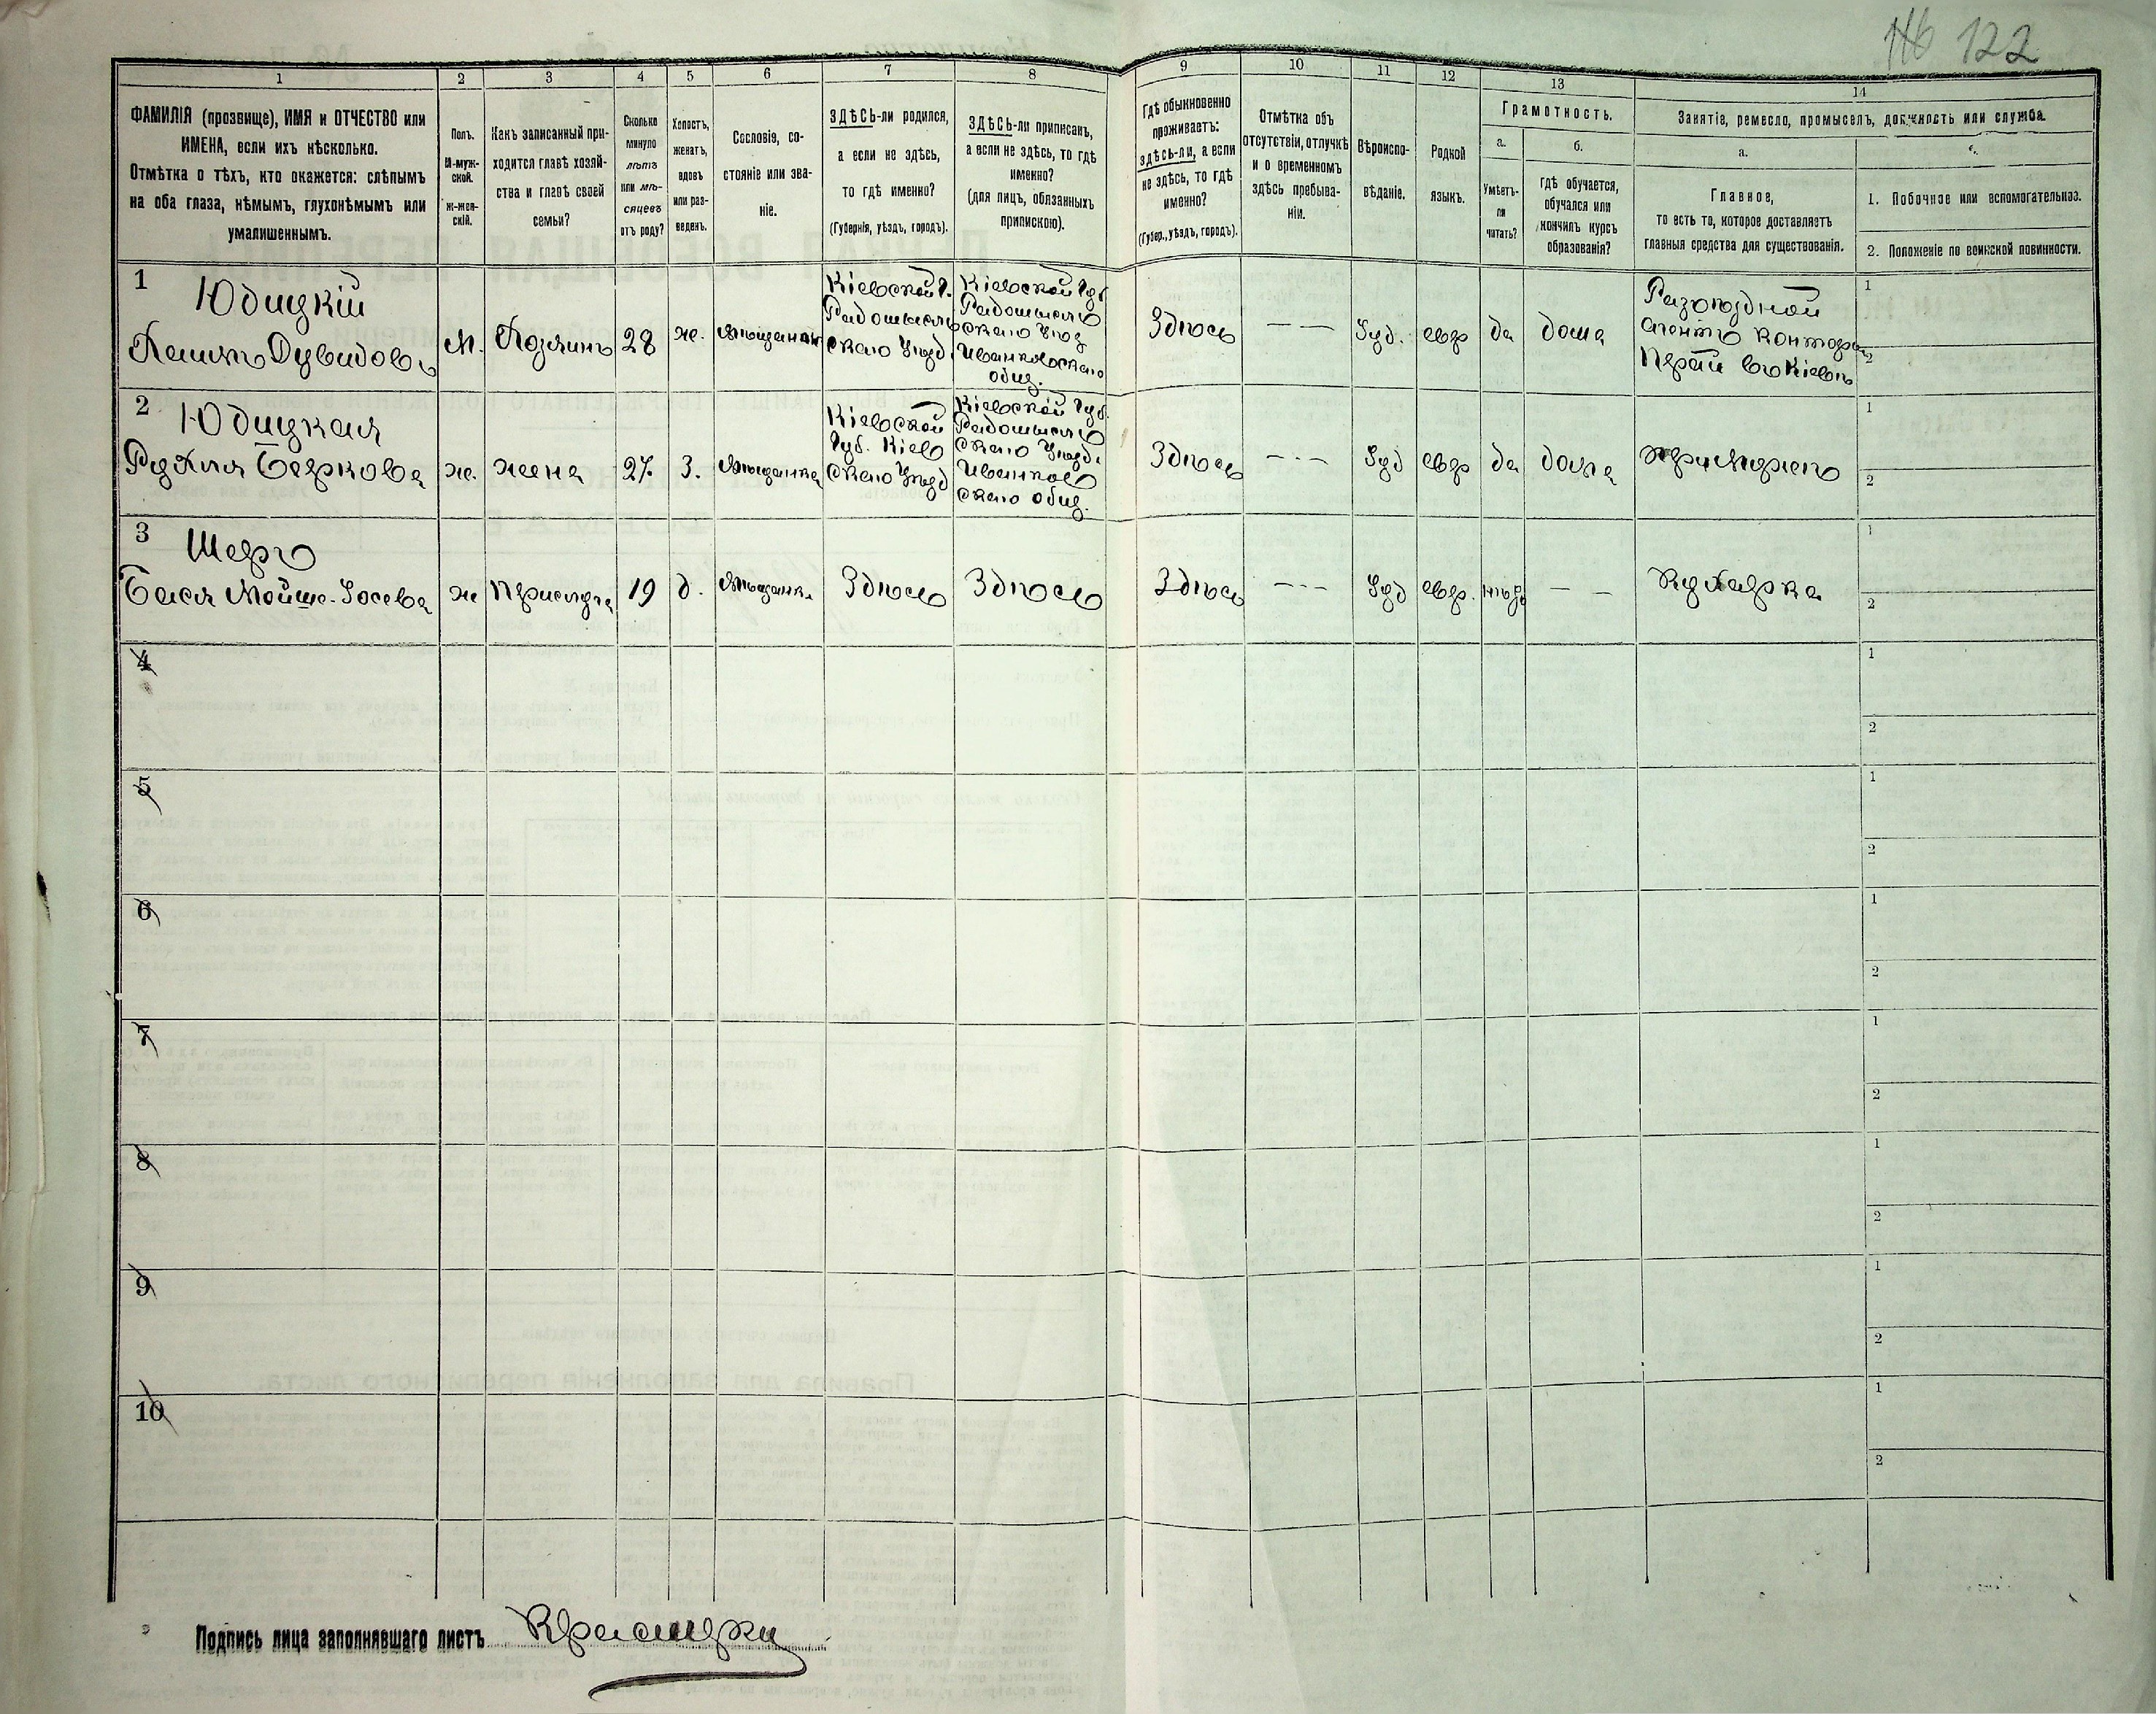 122
1
2
3
4
5
6
7
8
9
10
11
12
13
14
ФАМИЛІЯ (прозвище), ИМЯ и ОТЧЕСТВО или
ИМЕНА, если ихъ нѣсколько.
Отмѣтка о тѣхъ, кто окажется: слѣпымъ
на оба глаза, нѣмымъ, глухонѣмымъ или
умалишеннымъ.
Полъ.
М-муж-
ской.
ж-жен-
скій.
Какъ записанный при-
ходится главѣ хозяй-
ства и главѣ своей
семьи?
Сколько
минуло
лѣтъ
или мѣ-
сяцевъ
отъ роду?
Холостъ,
женатъ,
вдовъ
или раз-
веденъ.
Сословіе, со-
стояніе или зва-
ніе.
ЗДѢСЬ-ли родился,
а если не здѣсь,
то гдѣ именно?
(Губернія, уѣздъ, городъ).
ЗДѢСЬ-ли приписанъ,
а если не здѣсь, то гдѣ
именно?
(для лицъ, обязанныхъ
припискою).
Гдѣ обыкновенно
проживаетъ:
здѣсь-ли, а если
не здѣсь, то гдѣ
именно?
(Губер., уѣздъ, городъ).
Отмѣтка объ
отсутствіи, отлучкѣ
и о временномъ
здѣсь пребыва-
ніи.
Вѣроиспо-
вѣданіе.
Родной
языкъ.
Грамотность.
а.
Умѣетъ-
ли
читать?
б.
Гдѣ обучается,
обучался или
кончилъ курсъ
образованія?
Занятіе, ремесло, промыселъ, должность или служба.
а.
Главное,
то есть то, которое доставляетъ
главныя средства для существованія.
1. Побочное или вспомогательное.
2. Положеніе по воинской повинности.
1
Юдицкій
Дувидовъ
М.
Хозяинъ
28
ж.
Мѣщанинъ
Кіевской Г.
Радомысль
скаго Уѣзд
Кіевской Губ
Радомысль
скаго Уѣзд
Иванковскаго
общ.
Здѣсь
— —
Іуд.
евр
да
дома
Разъѣздной
агентъ конторы
въ Кіевѣ
1
2
2
Юдицкая
Рухля Беркова
ж.
жена
27
З.
Мѣщанка
Кіевской
Губ. Кіев
скаго Уѣзд
Кіевской Губ.
Радомысль
скаго Уѣзд.
Иванков
скаго общ.
Здѣсь
— - —
Іуд
евр
да
дома
при мужѣ
1
2
3
Шеръ
Бася Мойше-Іосева
ж
Прислуга
19
д.
Мѣщанка
Здѣсь
Здѣсь
Здѣсь
— - —
Іуд
евр.
нѣтъ
— —
Кухарка
1
2
4
1
2
5
1
2
6
1
2
7
1
2
8
1
2
9
1
2
10
1
2
Подпись лица заполнявшаго листъ